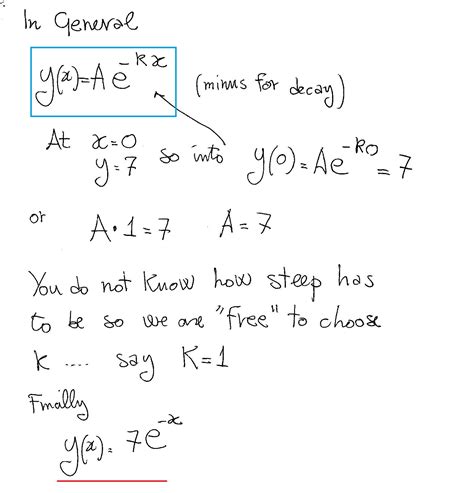 In General
y(x)=Ae^-kx (minus for decay)
At x=0
y=7 so into y(0)=Ae^-k0=7
or A·1=7 A=7
You do not know how steep has
to be so we are "free" to choose
k .... say K=1
Finally
y(x)=7e^-x